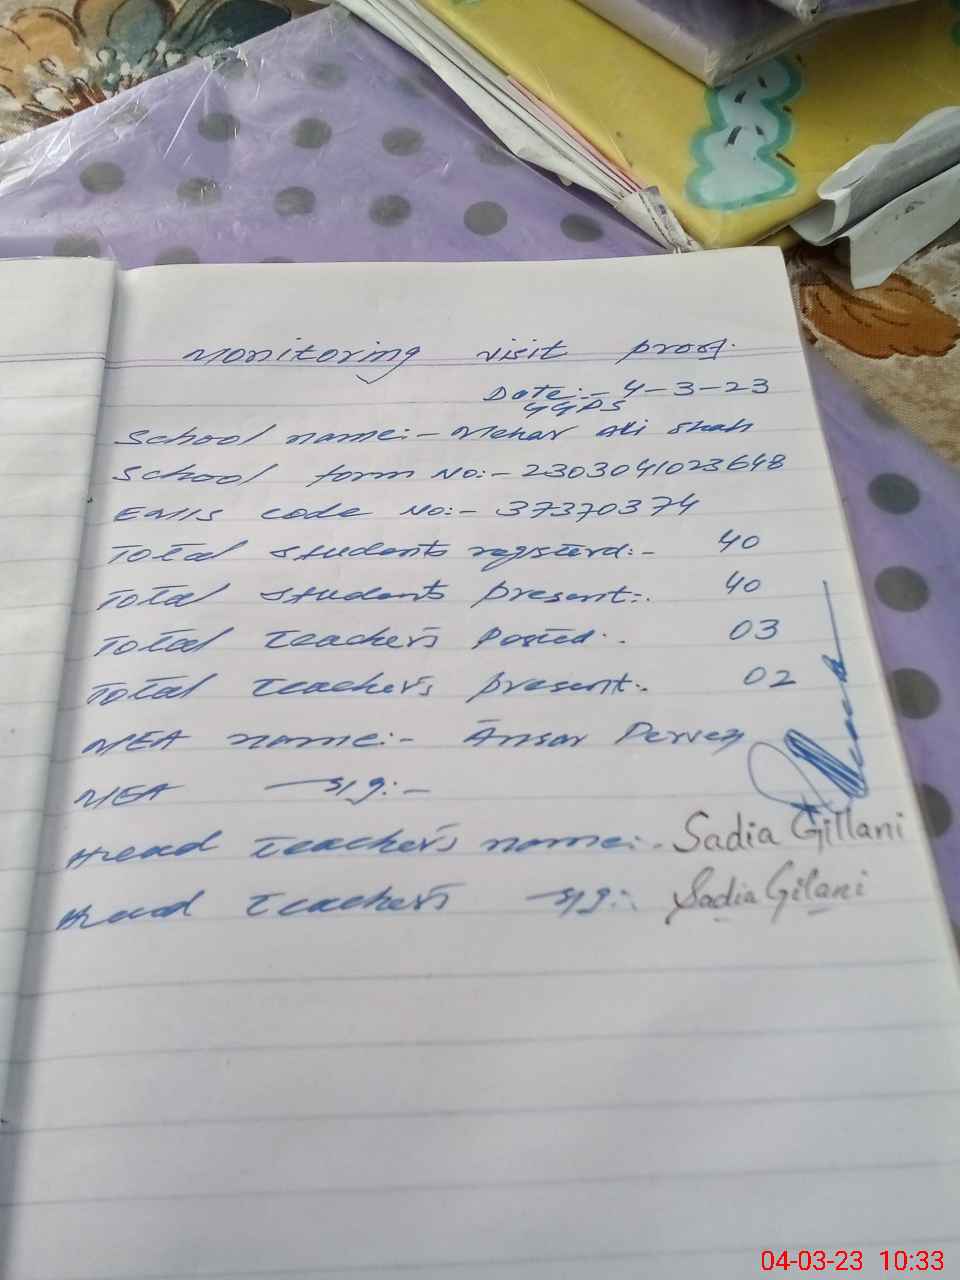 Monitoring visit proof.
Date:- 4-3-23
GGPS
School name:- Mehar Ali Shah
School form No:- 2303041023648
EMIS code No:- 37370374
Total students registerd:- 40
Total students present:. 40
Total teacher's Posted:. 03
Total teacher's present:. 02
MEA name:- Ansar Pervez
MEA sig:-
Head teacher's name:- Sadia Gillani
Head teacher's sig:. Sadia Gilani
04-03-23 10:33